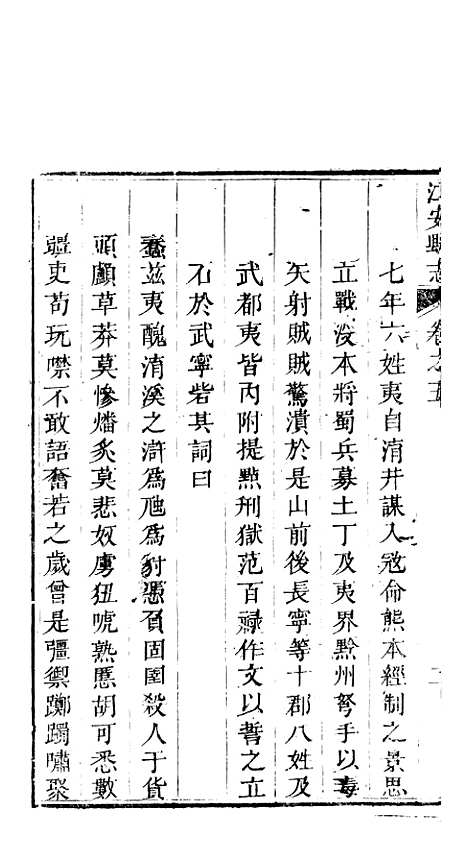 江安縣志 卷之五
七年六姓夷自淯井謀入寇命熊本經制之景思
立戰沒本將蜀兵募土丁及夷界黔州弩手以毒
矢射賊賊驚潰於是山前後長寧等十郡八姓及
武都夷皆內附提㸃刑獄范百祿作文以誓之立
石於武寧砦其詞曰
蠢兹夷醜淯溪之滸爲虺爲豺憑負固圉殺人于貨
頭顱草莽莫慘燔炙莫悲奴虜狃虓熟慝胡可悉數
疆吏苟玩噤不敢語奮若之歲曾是彊禦躑躅嘯聚